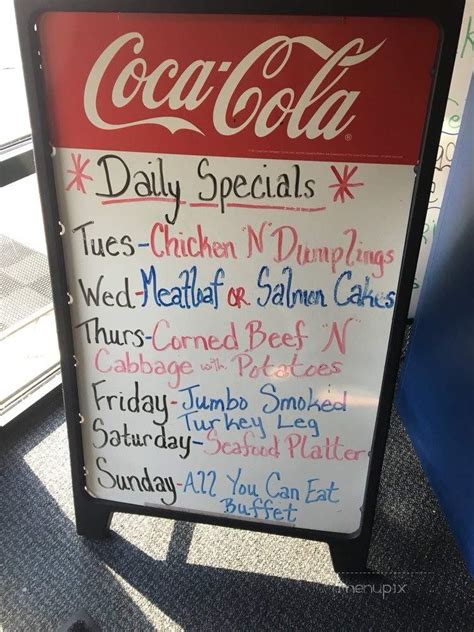 Coca-Cola
* Daily Specials *
Tues-Chicken "N" Dumplings
Wed-Meatloaf OR Salmon Cakes
Thurs-Corned Beef "N"
Cabbage with Potatoes
Friday-Jumbo Smoked
Turkey Leg
Saturday-Seafood Platter
Sunday-All You Can Eat
Buffet
menupix